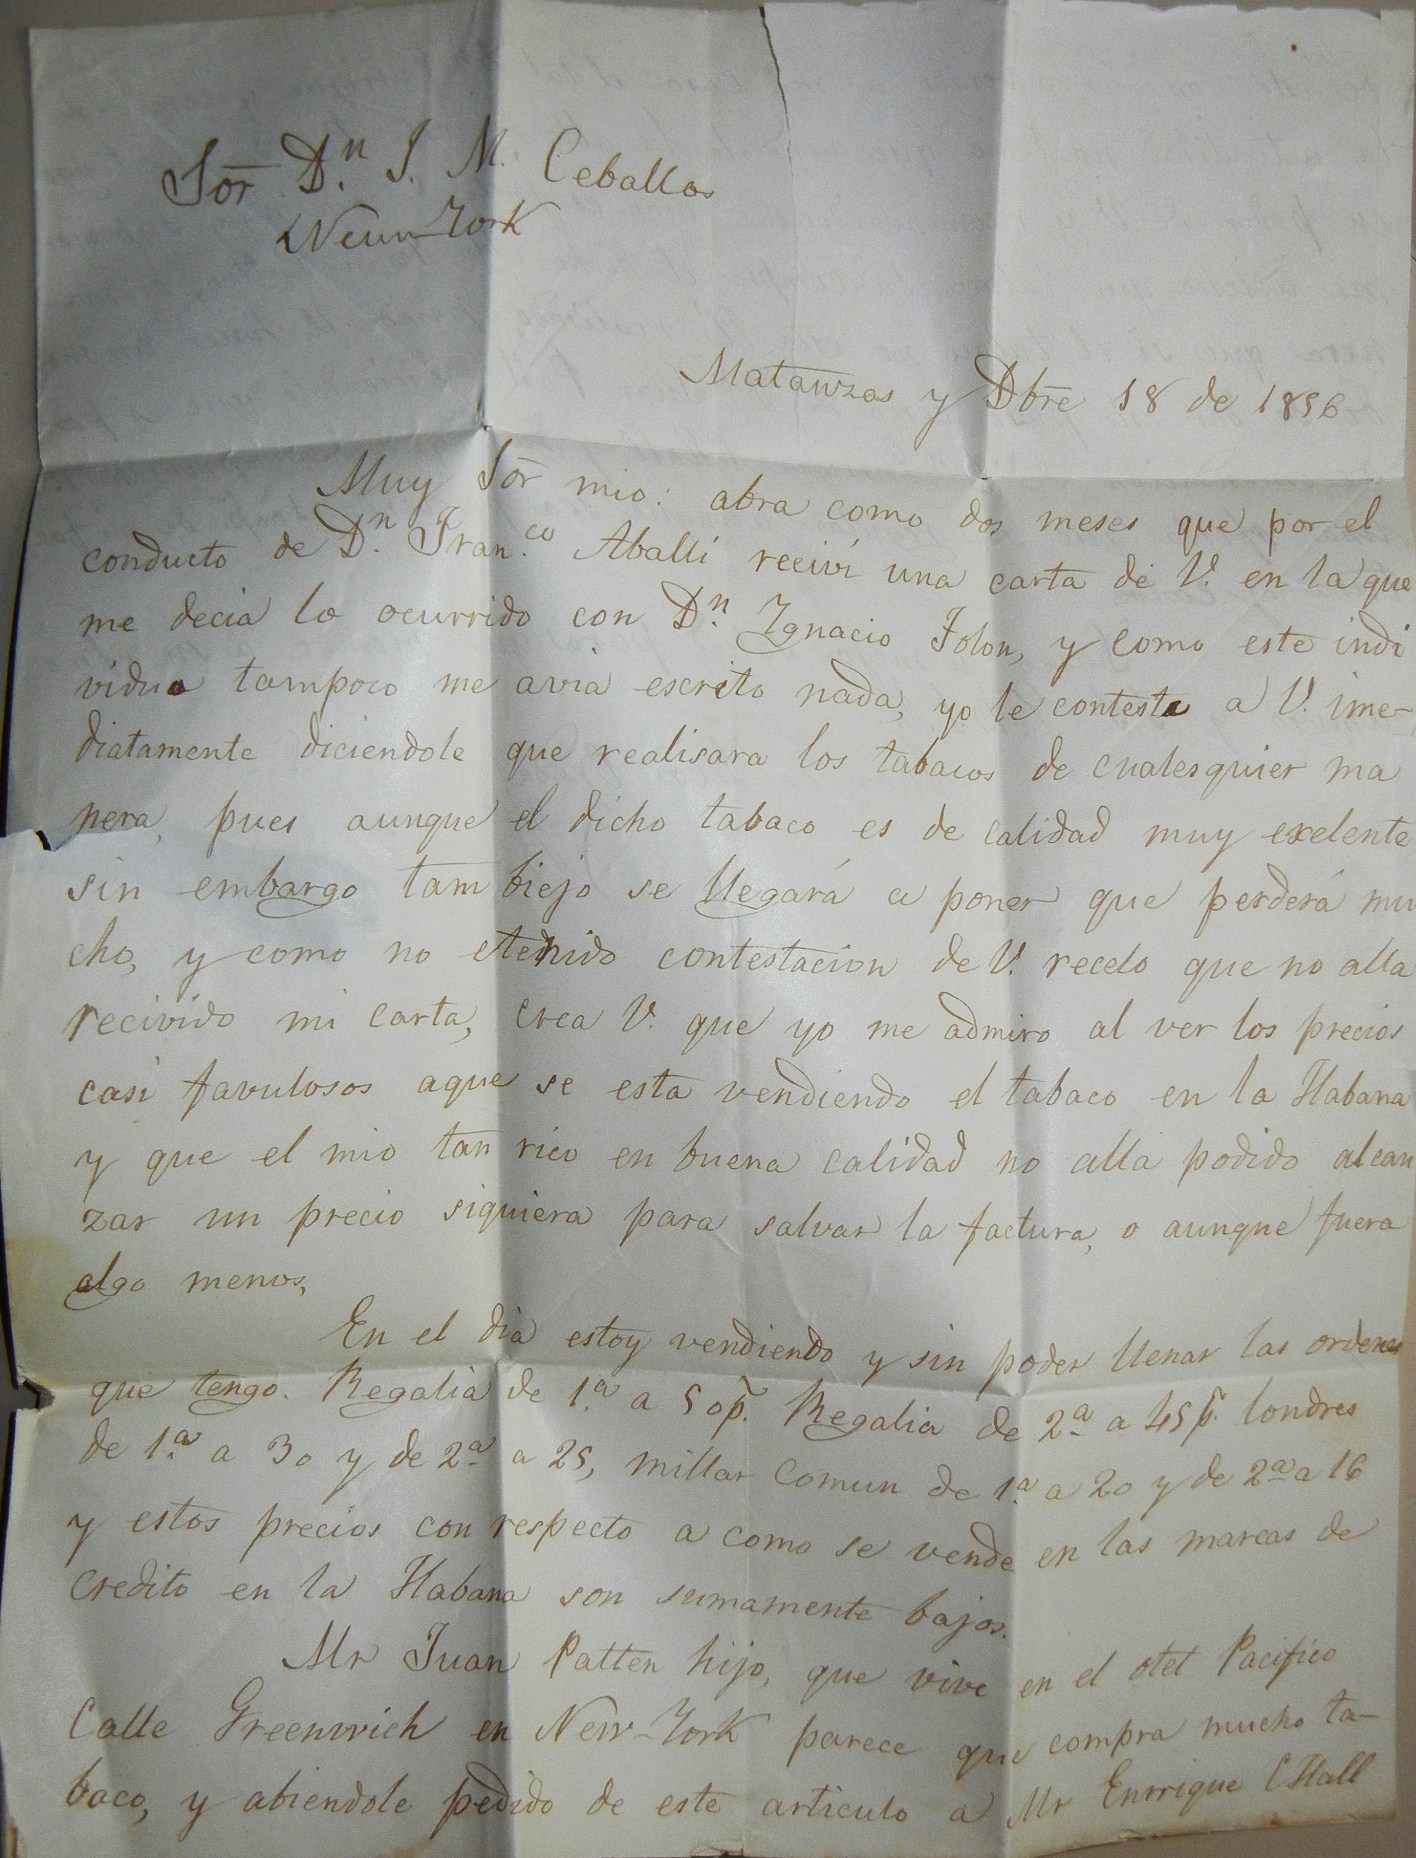 Sōr Dn. J. M. Ceballos
New-York
Matanzas y Dbre 18 de 1856
Muy Sōr mio: abra como dos meses que por el
conducto de Dn. Fran.co Aballí reciví una carta de V. en la que
me decia lo ocurrido con Dn. Ygnacio Folon, y como este indi
viduo tampoco me avia escrito nada, yo le conteste a V. ime-
diatamente diciendole que realisara los tabacos de cualesquier ma
nera, pues aunque el dicho tabaco es de calidad muy exelente
sin embargo tam biejo se llegará a poner que perderá mu
cho, y como no etenido contestacion de V. recelo que no alla
recivido mi carta, crea V. que yo me admiro al ver los precios
casi favulosos aque se esta vendiendo el tabaco en la Habana
y que el mio tan rico en buena calidad no alla podido alcan
zar un precio siquiera para salvar la factura, o aunque fuera
algo menos,
En el dia estoy vendiendo y sin poder llenar las ordenes
que tengo. Regalia de 1.a a 50p. Regalia de 2a a 45p. londres
de 1.a a 30 y de 2a a 25, millar comun de 1.a a 20 y de 2a a 16
y estos precios con respecto a como se vende en las marcas de
credito en la Habana son sumamente bajos.
Mr Juan Patten hijo, que vive en el otel Pacifico
Calle Greenwich en New-York parece que compra mucho ta-
baco, y abiendole pedido de este articulo a Mr Enrrique C Hall